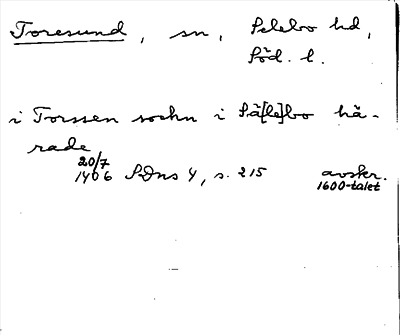 Toresund, sn, Selebo hd,
Söd. l.
i Torssen sochn i Sä[le]bo hä-
rade
20/7
1406 SDns 4, s. 215 avskr.
1600-talet